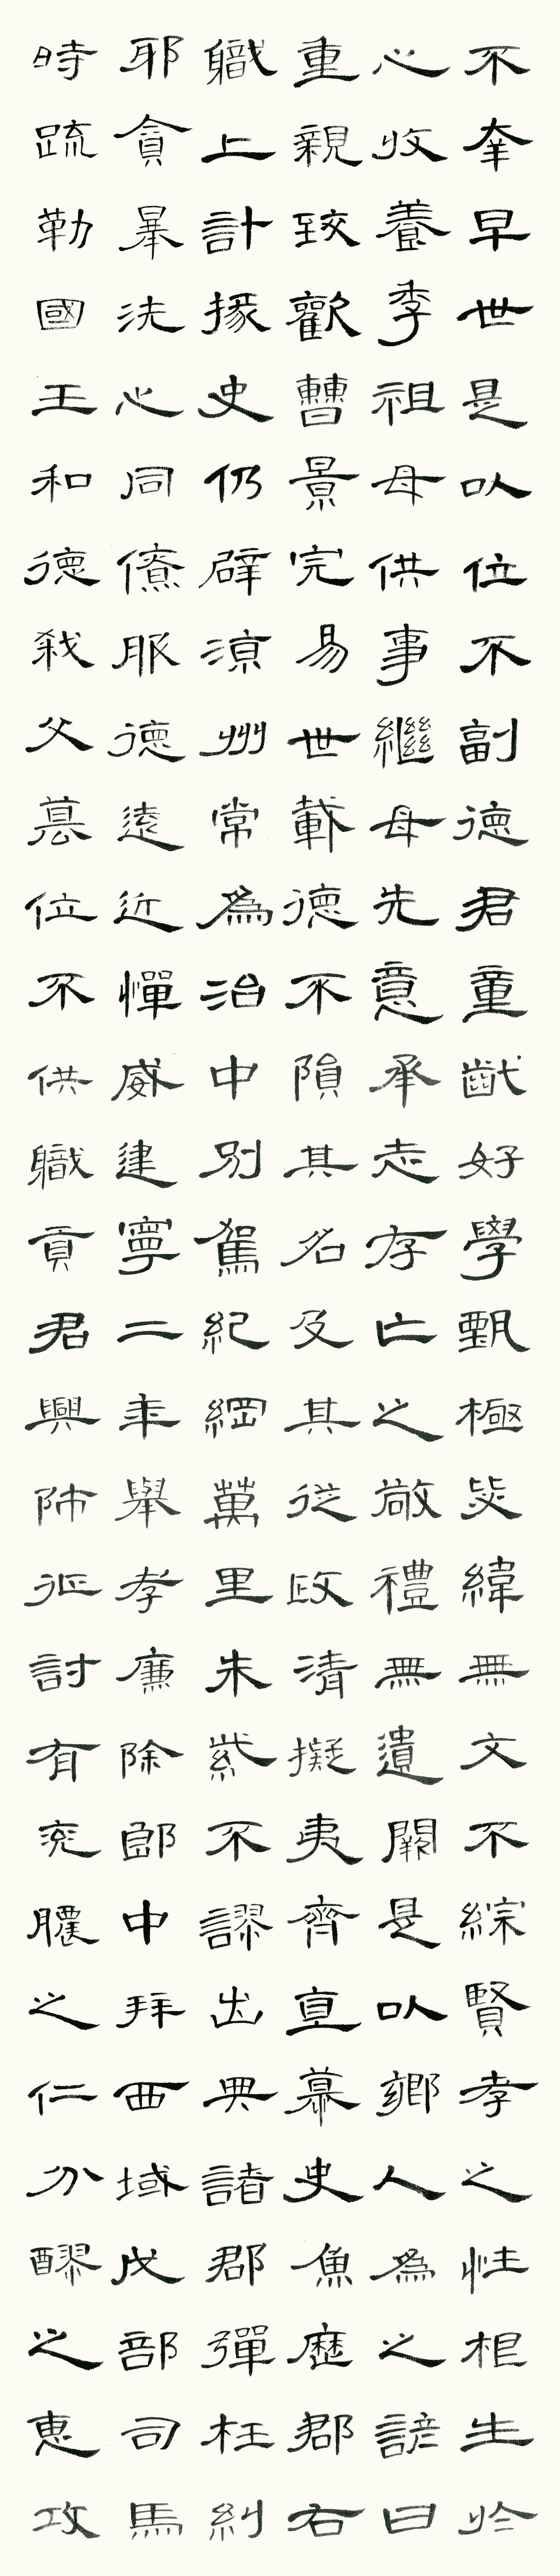 不幸早世是以位不副德君童齔好學甄極毖緯無文不綜賢孝之性根生於
心收養季祖母供事繼母先意承志存亡之敬禮無遺闕是以鄉人為之諺曰
重親致歡曹景完易世載德不隕其名及其從政清擬夷齊直慕史魚歷郡右
職上計掾史仍辟涼州常為治中別駕紀綱萬里朱紫不謬出典諸郡彈枉糾
邪貪暴洗心同僚服德遠近憚威建寧二年舉孝廉除郎中拜西域戊部司馬
時疏勒國王和德弒父篡位不供職貢君興師征討有兗膿之仁分醪之惠攻